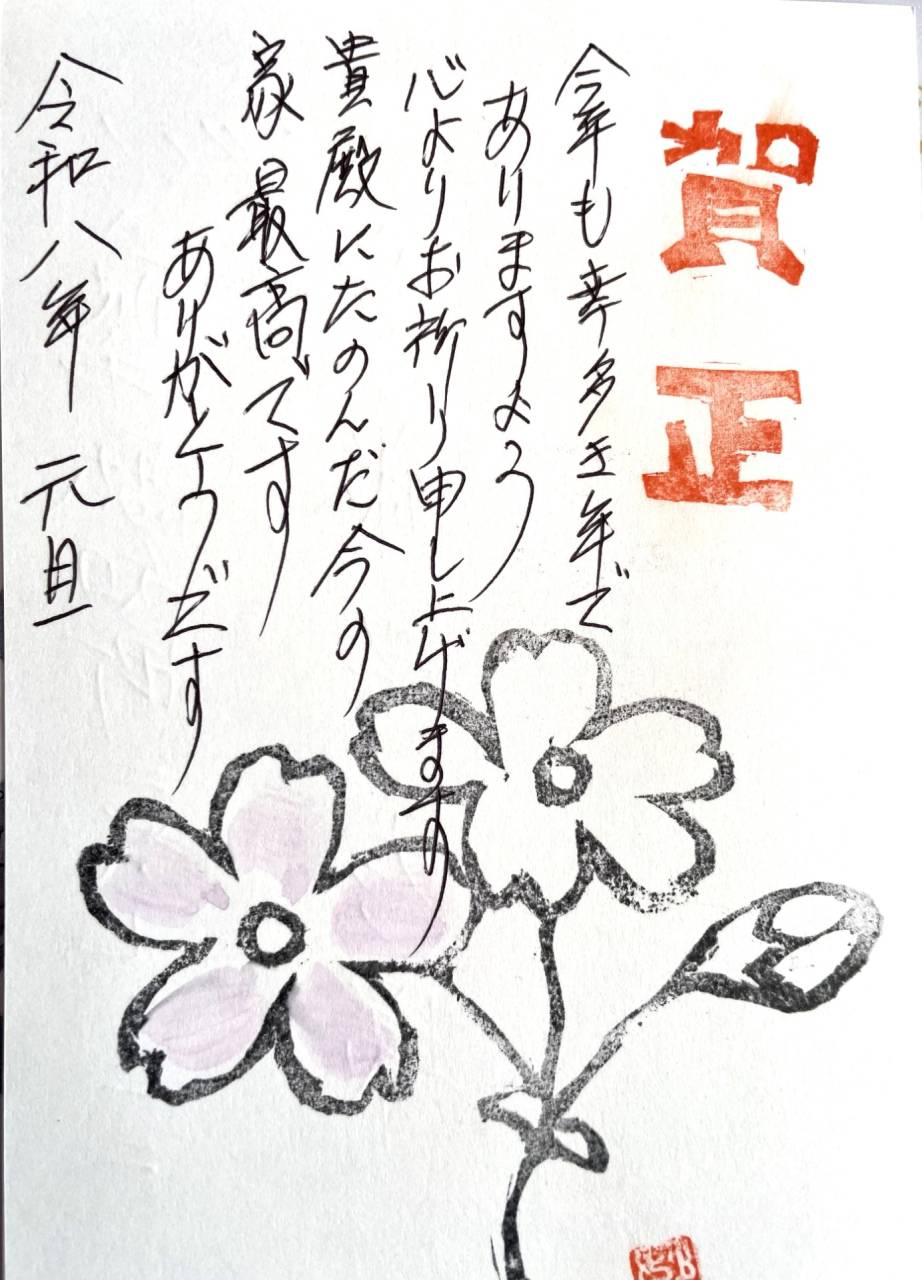 賀正
今年も幸多き年で
ありますよう
心よりお祈り申し上げます
貴殿にたのんだ今の
家最高です
ありがとうです
令和八年 元旦